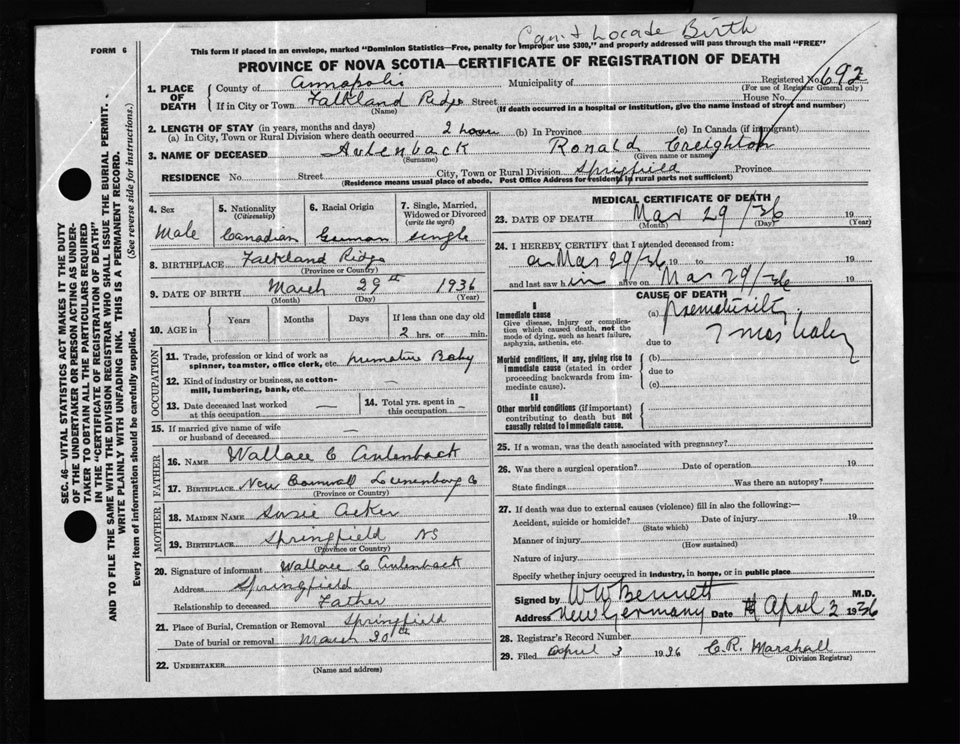 Can't Locate Birth
FORM 6
This form if placed in an envelope, marked "Dominion Statistics—Free, penalty for improper use $300," and properly addressed will pass through the mail "FREE"
PROVINCE OF NOVA SCOTIA—CERTIFICATE OF REGISTRATION OF DEATH
1. PLACE OF DEATH County of Annapolis Municipality of Registered No. 692
(For use of Registrar General only)
If in City or Town Falkland Ridge Street House No.
(Name) (If death occurred in a hospital or institution, give the name instead of street and number)
2. LENGTH OF STAY (in years, months and days)
(a) In City, Town or Rural Division where death occurred 2 hours (b) In Province (c) In Canada (if immigrant)
3. NAME OF DECEASED Aulenback Ronald Creighton
(Surname) (Given name or names)
RESIDENCE No. Street City, Town or Rural Division Springfield Province
(Residence means usual place of abode. Post Office Address for residents in rural parts not sufficient)
4. Sex Male
5. Nationality (Citizenship) Canadian
6. Racial Origin German
7. Single, Married, Widowed or Divorced (write the word) single
8. BIRTHPLACE Falkland Ridge
(Province or Country)
9. DATE OF BIRTH March 29th 1936
(Month) (Day) (Year)
10. AGE in Years Months Days If less than one day old
2 hrs. or min.
OCCUPATION
11. Trade, profession or kind of work as spinner, teamster, office clerk, etc. premature Baby
12. Kind of industry or business, as cotton-mill, lumbering, bank, etc. —
13. Date deceased last worked at this occupation —
14. Total yrs. spent in this occupation —
15. If married give name of wife or husband of deceased —
FATHER
16. NAME Wallace C Aulenback
17. BIRTHPLACE New Cornwall Lunenburg Co
(Province or Country)
MOTHER
18. MAIDEN NAME Susie Acker
19. BIRTHPLACE Springfield NS
(Province or Country)
20. Signature of informant Wallace C Aulenback
Address Springfield
Relationship to deceased Father
21. Place of Burial, Cremation or Removal Springfield
Date of burial or removal March 30th
22. UNDERTAKER
(Name and address)
MEDICAL CERTIFICATE OF DEATH
23. DATE OF DEATH Mar 29/36 19
(Month) (Day) (Year)
24. I HEREBY CERTIFY that I attended deceased from:
on Mar 29/36 19 to 19
and last saw h im alive on Mar 29/36 19
CAUSE OF DEATH
I
Immediate cause (a) prematurity
Give disease, injury or complication which caused death, not the mode of dying, such as heart failure, asphyxia, asthenia, etc.
due to 7 mos baby
Morbid conditions, if any, giving rise to immediate cause (stated in order proceeding backwards from immediate cause).
(b)
due to
(c)
II
Other morbid conditions (if important) contributing to death but not causally related to immediate cause.
25. If a woman, was the death associated with pregnancy?
26. Was there a surgical operation? Date of operation 19
State findings Was there an autopsy?
27. If death was due to external causes (violence) fill in also the following:—
Accident, suicide or homicide? Date of injury 19
(State which)
Manner of injury
(How sustained)
Nature of injury
Specify whether injury occurred in industry, in home, or in public place
Signed by W W Bennett M.D.
Address New Germany Date April 2 1936
28. Registrar's Record Number
29. Filed April 3 1936 C.R. Marshall
(Division Registrar)
SEC. 46—VITAL STATISTICS ACT MAKES IT THE DUTY
OF THE UNDERTAKER OR PERSON ACTING AS UNDER-
TAKER TO OBTAIN ALL THE PARTICULARS REQUIRED
IN THE "CERTIFICATE OF REGISTRATION OF DEATH"
AND TO FILE THE SAME WITH THE DIVISION REGISTRAR WHO SHALL ISSUE THE BURIAL PERMIT.
WRITE PLAINLY WITH UNFADING INK. THIS IS A PERMANENT RECORD.
Every item of information should be carefully supplied. (See reverse side for instructions.)